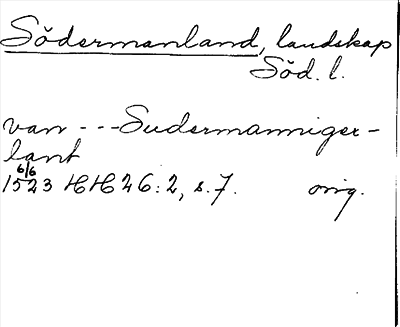 Södermanland, landskap
Söd. l.
van --- Sudermanniger-
lant
6/6
1523 HH 26:2, s. 7. orig.